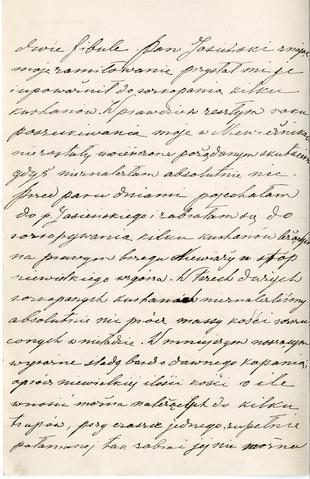 dwie fibule. Pan Jasieński znając
moje zamiłowanie przysłał mi je
i upoważnił do rozkopania kilku
kurhanów. Wprawdzie w zeszłym roku
poszukiwania moje w
nie zostały uwieńczone pożądanym skutkiem
gdyż nieznalazłam absolutnie nic
przed paru dniami pojechałam
do p. Jasieńskiego i zabrałam się do
rozkopywania kilku kurhanów leżących
na prawym brzegu Niewiaży u stóp
niewielkiego wzgórza. W trzech dużych
rozkopanych kurhanach nieznaleźliśmy
absolutnie nic prócz massy kości
w nieładzie. W mniejszym noszącym
wyraźne ślady bardzo dawnego kopania,
oprócz niewielkiej ilości kości o ile
wnosić można należących do kilku
trupów, przy czaszce jednego, zupełnie
połamanej tak zebrać jej nie można